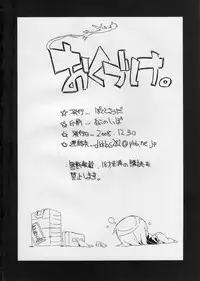 おくづけ。
☆発行...
☆印刷... ねこのしっぽ
☆発行日... 2008.12.30
☆連絡先...
無断転載、18才未満の購読を
禁止します。